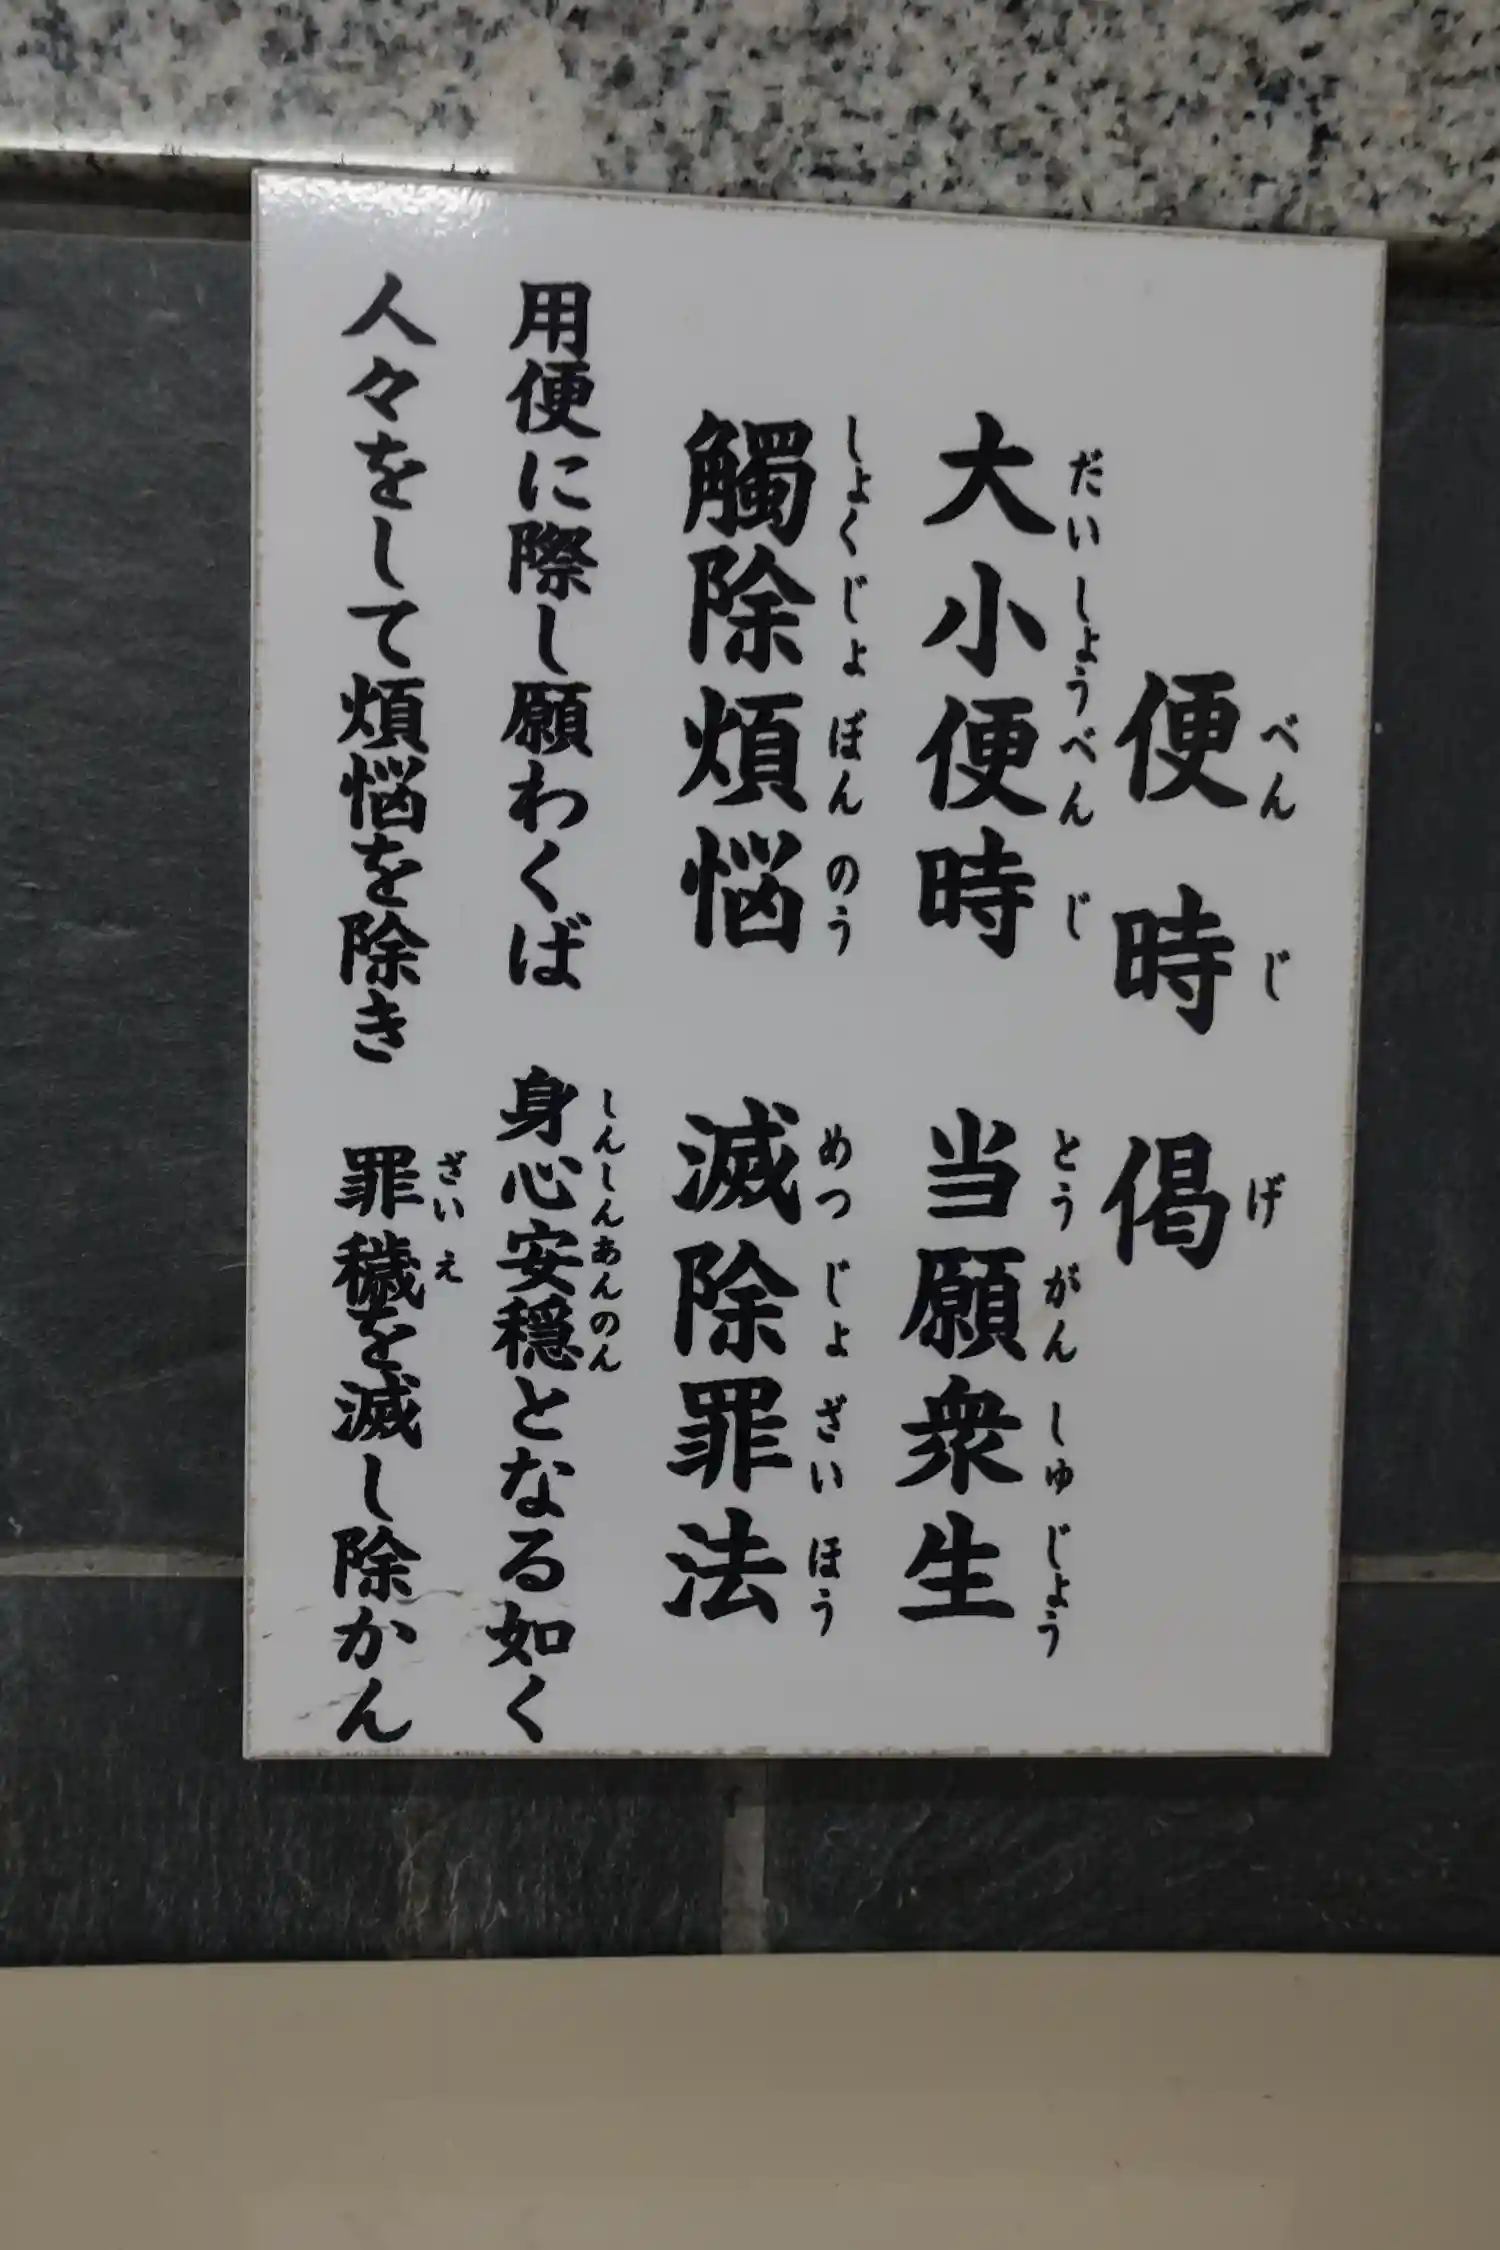 便時偈
べんじげ
大小便時 当願衆生
だいしょうべんじ とうがんしゅじょう
觸除煩悩 滅除罪法
しょくじょぼんのう めつじょざいほう
用便に際し願わくば 身心安穏となる如く
しんしんあんのん
人々をして煩悩を除き 罪穢を滅し除かん
ざいえ